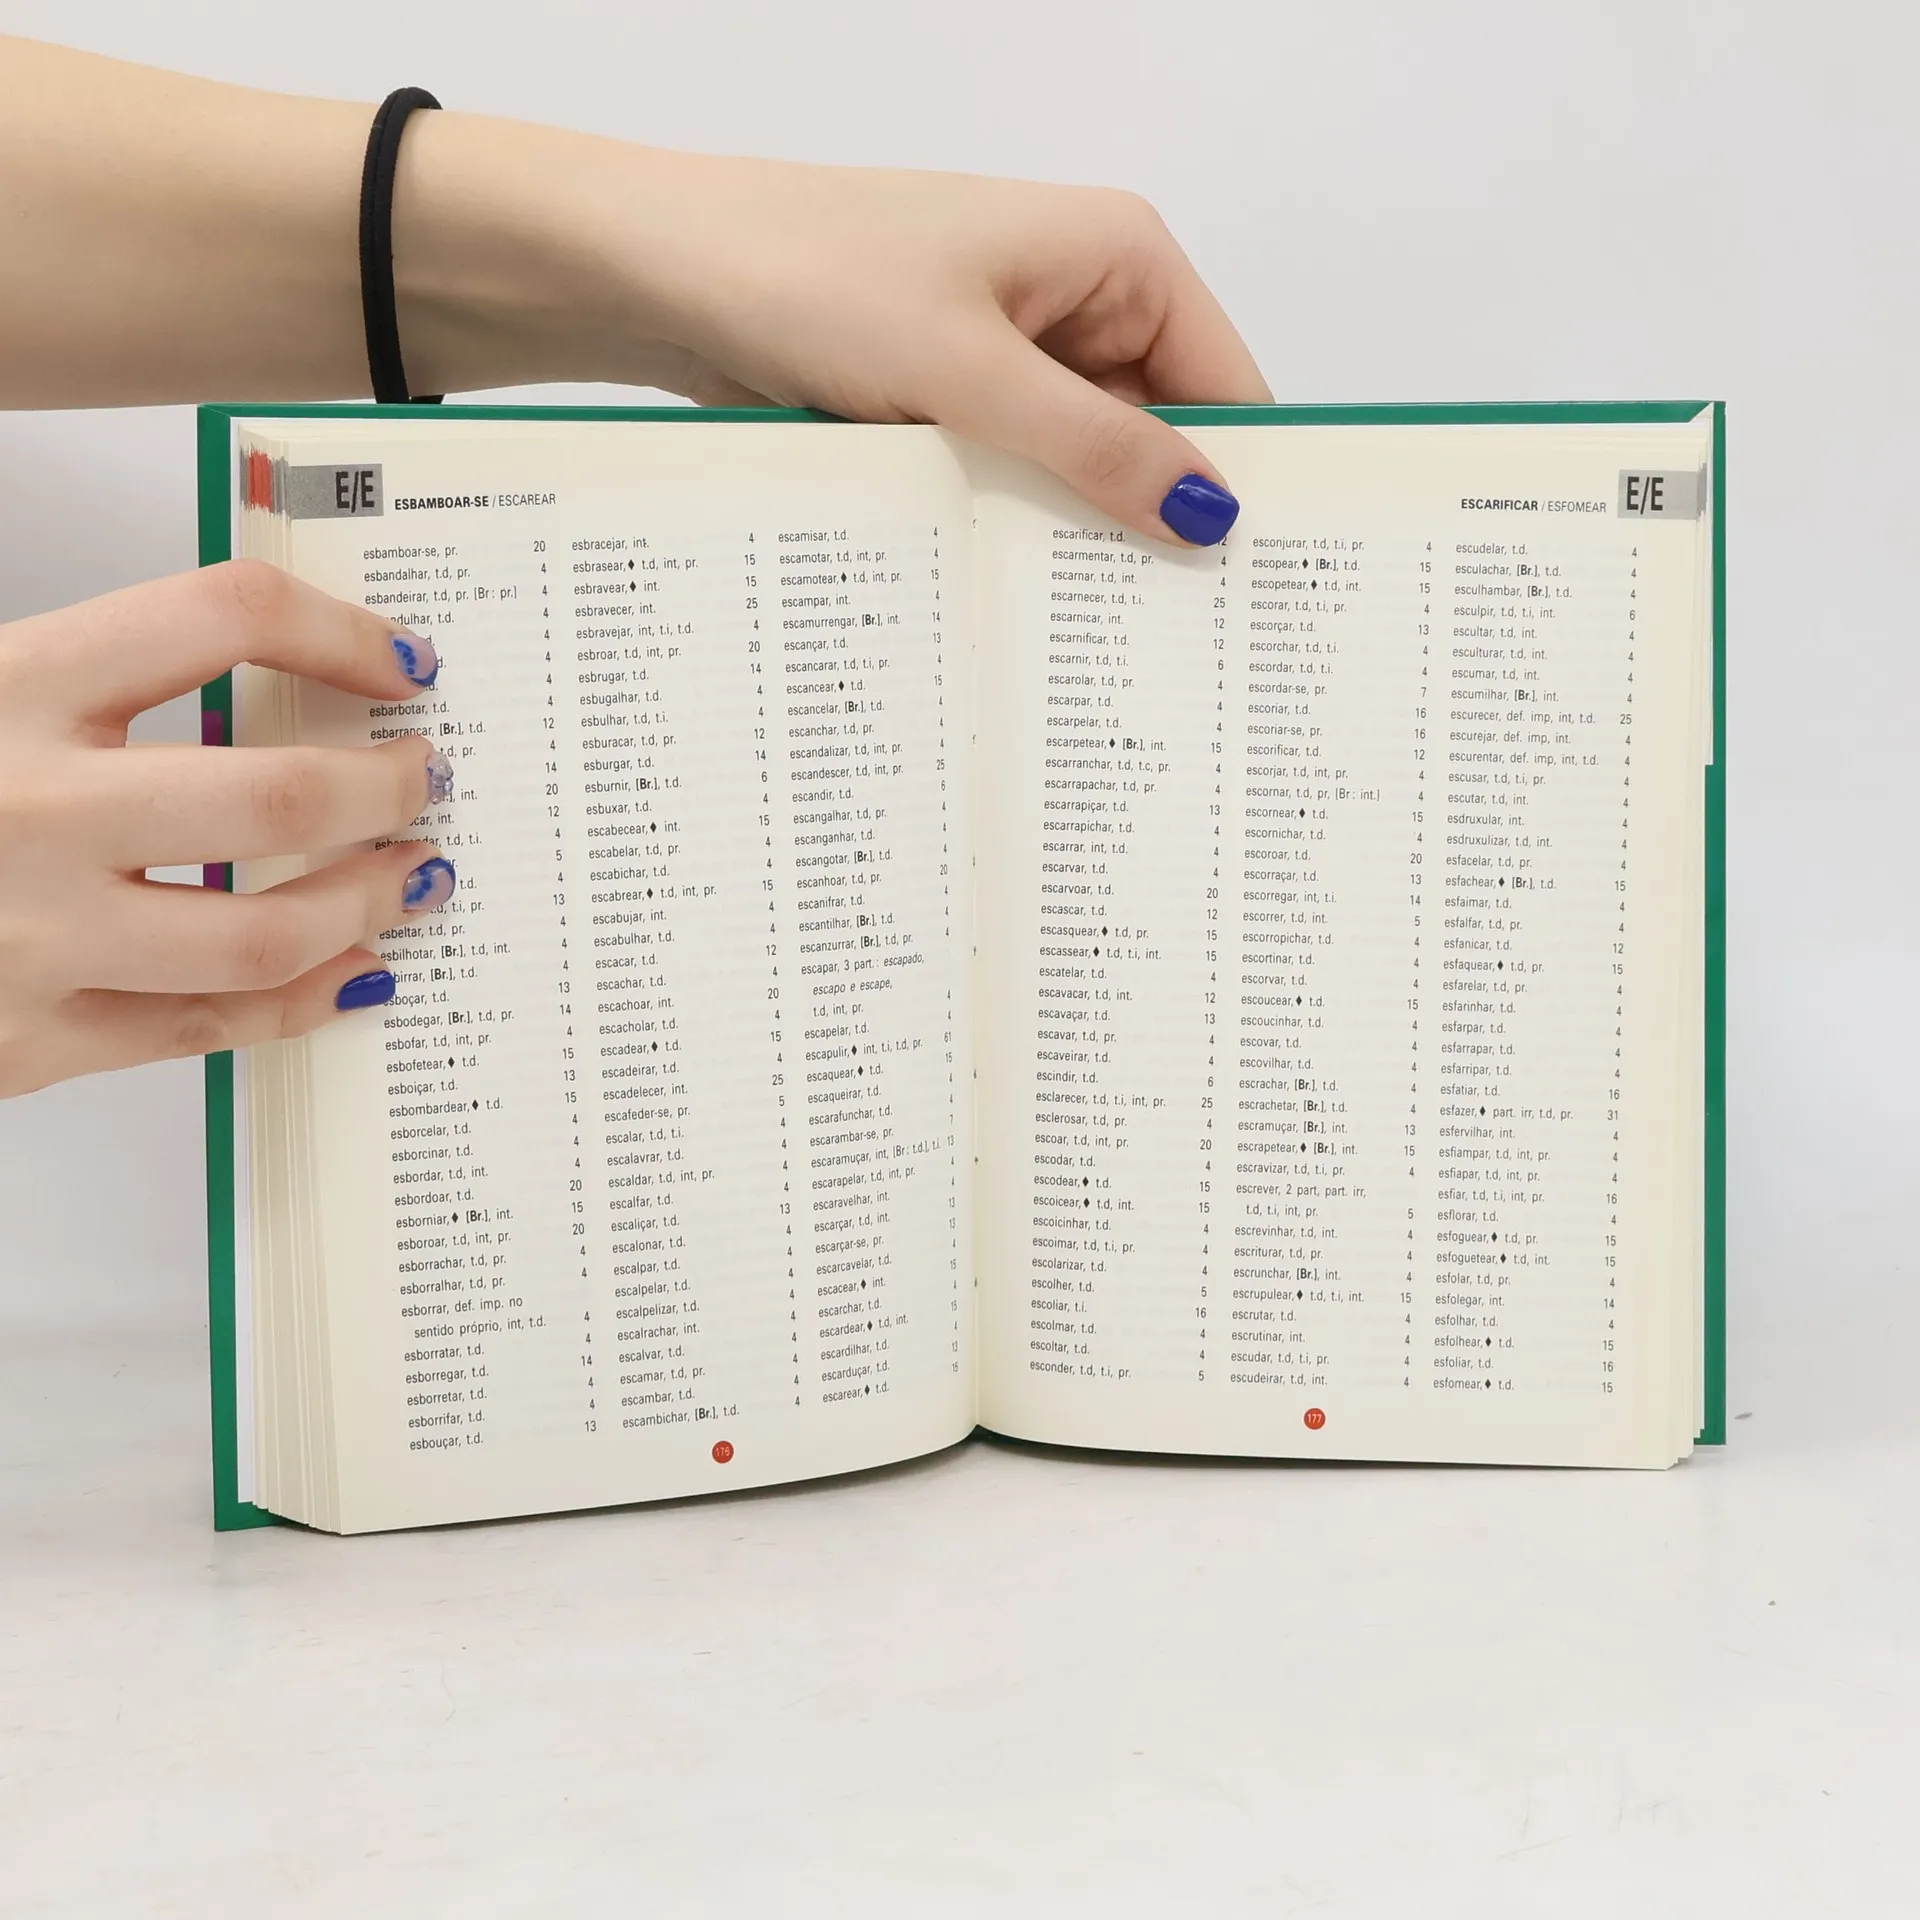 E/E
ESBAMBOAR-SE / ESCAREAR
esbamboar-se, pr. 20
esbandalhar, t.d, pr. 4
esbandeirar, t.d, pr. [Br: pr.] 4
ndulhar, t.d. 4
d. 4
d. 4
d. 4
esbarbotar, t.d. 4
esbarrancar, [Br.], t.d. 12
t.d, pr. 4
14
int. 20
car, int. 12
t.d, t.i. 4
5
t.d. 4
t.d, t.i, pr. 13
esbeltar, t.d, pr. 4
esbilhotar, [Br.], t.d, int. 4
birrar, [Br.], t.d. 4
esboçar, t.d. 13
esbodegar, [Br.], t.d, pr. 14
esbofar, t.d, int, pr. 4
esbofetear,♦ t.d. 15
esboiçar, t.d. 13
esbombardear,♦ t.d. 15
esborcelar, t.d. 4
esborcinar, t.d. 4
esbordar, t.d, int. 4
esbordoar, t.d. 20
esborniar,♦ [Br.], int. 15
esboroar, t.d, int, pr. 20
esborrachar, t.d, pr. 4
esborralhar, t.d, pr. 4
esborrar, def. imp. no
sentido próprio, int, t.d. 4
esborratar, t.d. 4
esborregar, t.d. 14
esborretar, t.d. 4
esborrifar, t.d. 4
esbouçar, t.d. 13
esbracejar, int. 4
esbrasear,♦ t.d, int, pr. 15
esbravear,♦ int. 15
esbravecer, int. 25
esbravejar, int, t.i, t.d. 4
esbroar, t.d, int, pr. 20
esbrugar, t.d. 14
esbugalhar, t.d. 4
esbulhar, t.d, t.i. 4
esburacar, t.d, pr. 12
esburgar, t.d. 14
esburnir, [Br.], t.d. 6
esbuxar, t.d. 4
escabecear,♦ int. 15
escabelar, t.d, pr. 4
escabichar, t.d. 4
escabrear,♦ t.d, int, pr. 15
escabujar, int. 4
escabulhar, t.d. 4
escacar, t.d. 12
escachar, t.d. 4
escachoar, int. 20
escacholar, t.d. 4
escadear,♦ t.d. 15
escadeirar, t.d. 4
escadelecer, int. 25
escafeder-se, pr. 5
escalar, t.d, t.i. 4
escalavrar, t.d. 4
escaldar, t.d, int, pr. 4
escalfar, t.d. 4
escaliçar, t.d. 13
escalonar, t.d. 4
escalpar, t.d. 4
escalpelar, t.d. 4
escalpelizar, t.d. 4
escalrachar, int. 4
escalvar, t.d. 4
escamar, t.d, pr. 4
escambar, t.d. 4
escambichar, [Br.], t.d. 4
escamisar, t.d. 4
escamotar, t.d, int, pr. 4
escamotear,♦ t.d, int, pr. 15
escampar, int. 4
escamurrengar, [Br.], int. 14
escançar, t.d. 13
escancarar, t.d, t.i, pr. 4
escancear,♦ t.d. 15
escancelar, [Br.], t.d. 4
escanchar, t.d, pr. 4
escandalizar, t.d, int, pr. 4
escandescer, t.d, int, pr. 25
escandir, t.d. 6
escangalhar, t.d, pr. 4
escanganhar, t.d. 4
escangotar, [Br.], t.d. 4
escanhoar, t.d, pr. 20
escanifrar, t.d. 4
escantilhar, [Br.], t.d. 4
escanzurrar, [Br.], t.d, pr. 4
escapar, 3 part.: escapado,
escapo e escape,
t.d, int, pr. 4
escapelar, t.d. 4
escapulir,♦ int, t.i, t.d, pr. 61
escaquear,♦ t.d. 15
escaqueirar, t.d. 4
escarafunchar, t.d. 4
escarambar-se, pr. 7
escaramuçar, int, [Br: t.d.], t.i. 13
escarapelar, t.d, int, pr. 4
escaravelhar, int. 4
escarçar, t.d, int. 13
escarçar-se, pr. 13
escarcavelar, t.d. 4
escacear,♦ int. 15
escarchar, t.d. 4
escardear,♦ t.d, int. 15
escardilhar, t.d. 4
escarduçar, t.d. 13
escarear,♦ t.d. 15
176
ESCARIFICAR / ESFOMEAR
E/E
escarificar, t.d. 12
escarmentar, t.d, pr. 4
escarnar, t.d, int. 4
escarnecer, t.d, t.i. 25
escarnicar, int. 12
escarnificar, t.d. 12
escarnir, t.d, t.i. 6
escarolar, t.d, pr. 4
escarpar, t.d. 4
escarpelar, t.d. 4
escarpetear,♦ [Br.], int. 15
escarranchar, t.d, t.c, pr. 4
escarrapachar, t.d, pr. 4
escarrapiçar, t.d. 13
escarrapichar, t.d. 4
escarrar, int, t.d. 4
escarvar, t.d. 4
escarvoar, t.d. 20
escascar, t.d. 12
escasquear,♦ t.d, pr. 15
escassear,♦ t.d, t.i, int. 15
escatelar, t.d. 4
escavacar, t.d, int. 12
escavaçar, t.d. 13
escavar, t.d, pr. 4
escaveirar, t.d. 4
escindir, t.d. 6
esclarecer, t.d, t.i, int, pr. 25
esclerosar, t.d, pr. 4
escoar, t.d, int, pr. 20
escodar, t.d. 4
escodear,♦ t.d. 15
escoicear,♦ t.d, int. 15
escoicinhar, t.d. 4
escoimar, t.d, t.i, pr. 4
escolarizar, t.d. 4
escolher, t.d. 5
escoliar, t.i. 16
escolmar, t.d. 4
escoltar, t.d. 4
esconder, t.d, t.i, pr. 5
esconjurar, t.d, t.i, pr. 4
escopear,♦ [Br.], t.d. 15
escopetear,♦ t.d, int. 15
escorar, t.d, t.i, pr. 4
escorçar, t.d. 13
escorchar, t.d, t.i. 4
escordar, t.d, t.i. 4
escordar-se, pr. 7
escoriar, t.d. 16
escoriar-se, pr. 16
escorificar, t.d. 12
escorjar, t.d, int, pr. 4
escornar, t.d, pr, [Br: int.] 4
escornear,♦ t.d. 15
escornichar, t.d. 4
escoroar, t.d. 20
escorraçar, t.d. 13
escorregar, int, t.i. 14
escorrer, t.d, int. 5
escorropichar, t.d. 4
escortinar, t.d. 4
escorvar, t.d. 4
escoucear,♦ t.d. 15
escoucinhar, t.d. 4
escovar, t.d. 4
escovilhar, t.d. 4
escrachar, [Br.], t.d. 4
escrachetar, [Br.], t.d. 4
escramuçar, [Br.], int. 13
escrapetear,♦ [Br.], int. 15
escravizar, t.d, t.i, pr. 4
escrever, 2 part, part. irr,
t.d, t.i, int, pr. 5
escrevinhar, t.d, int. 4
escriturar, t.d, pr. 4
escrunchar, [Br.], int. 4
escrupulear,♦ t.d, t.i, int. 15
escrutar, t.d. 4
escrutinar, int. 4
escudar, t.d, t.i, pr. 4
escudeirar, t.d, int. 4
escudelar, t.d. 4
esculachar, [Br.], t.d. 4
esculhambar, [Br.], t.d. 4
esculpir, t.d, t.i, int. 6
escultar, t.d, int. 4
esculturar, t.d, int. 4
escumar, t.d, int. 4
escumilhar, [Br.], int. 4
escurecer, def. imp, int, t.d. 25
escurejar, def. imp, int. 4
escurentar, def. imp, int, t.d. 4
escusar, t.d, t.i, pr. 4
escutar, t.d, int. 4
esdruxular, int. 4
esdruxulizar, t.d, int. 4
esfacelar, t.d, pr. 4
esfachear,♦ [Br.], t.d. 15
esfaimar, t.d. 4
esfalfar, t.d, pr. 4
esfanicar, t.d. 12
esfaquear,♦ t.d, pr. 15
esfarelar, t.d, pr. 4
esfarinhar, t.d. 4
esfarpar, t.d. 4
esfarrapar, t.d. 4
esfarripar, t.d. 4
esfatiar, t.d. 16
esfazer,♦ part. irr, t.d, pr. 31
esfervilhar, int. 4
esfiampar, t.d, int, pr. 4
esfiapar, t.d, int, pr. 4
esfiar, t.d, t.i, int, pr. 16
esflorar, t.d. 4
esfoguear,♦ t.d, pr. 15
esfoguetear,♦ t.d, int. 15
esfolar, t.d, pr. 4
esfolegar, int. 14
esfolhar, t.d. 4
esfolhear,♦ t.d. 15
esfoliar, t.d. 16
esfomear,♦ t.d. 15
177